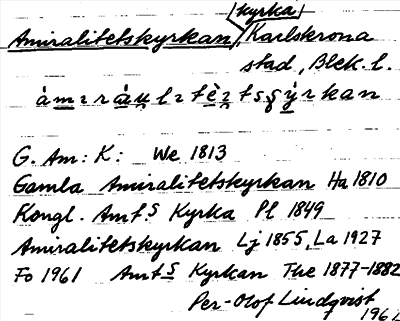 kyrka
Amiralitetskyrkan, Karlskrona
stad, Blek. l.
G. Am: K: We 1813
Gamla Amiralitetskyrkan Ha 1810
Kongl. Amts Kyrka Pl 1849
Amiralitetskyrkan Lj 1855, La 1927
Fo 1961 Amts Kyrkan The 1877-1882
Per-Olof Lindqvist
1962